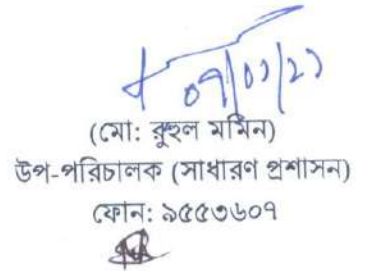 (মো: রুহুল মমিন)
উপ-পরিচালক (সাধারণ প্রশাসন)
ফোন: ৯৫৫৩৬০৭